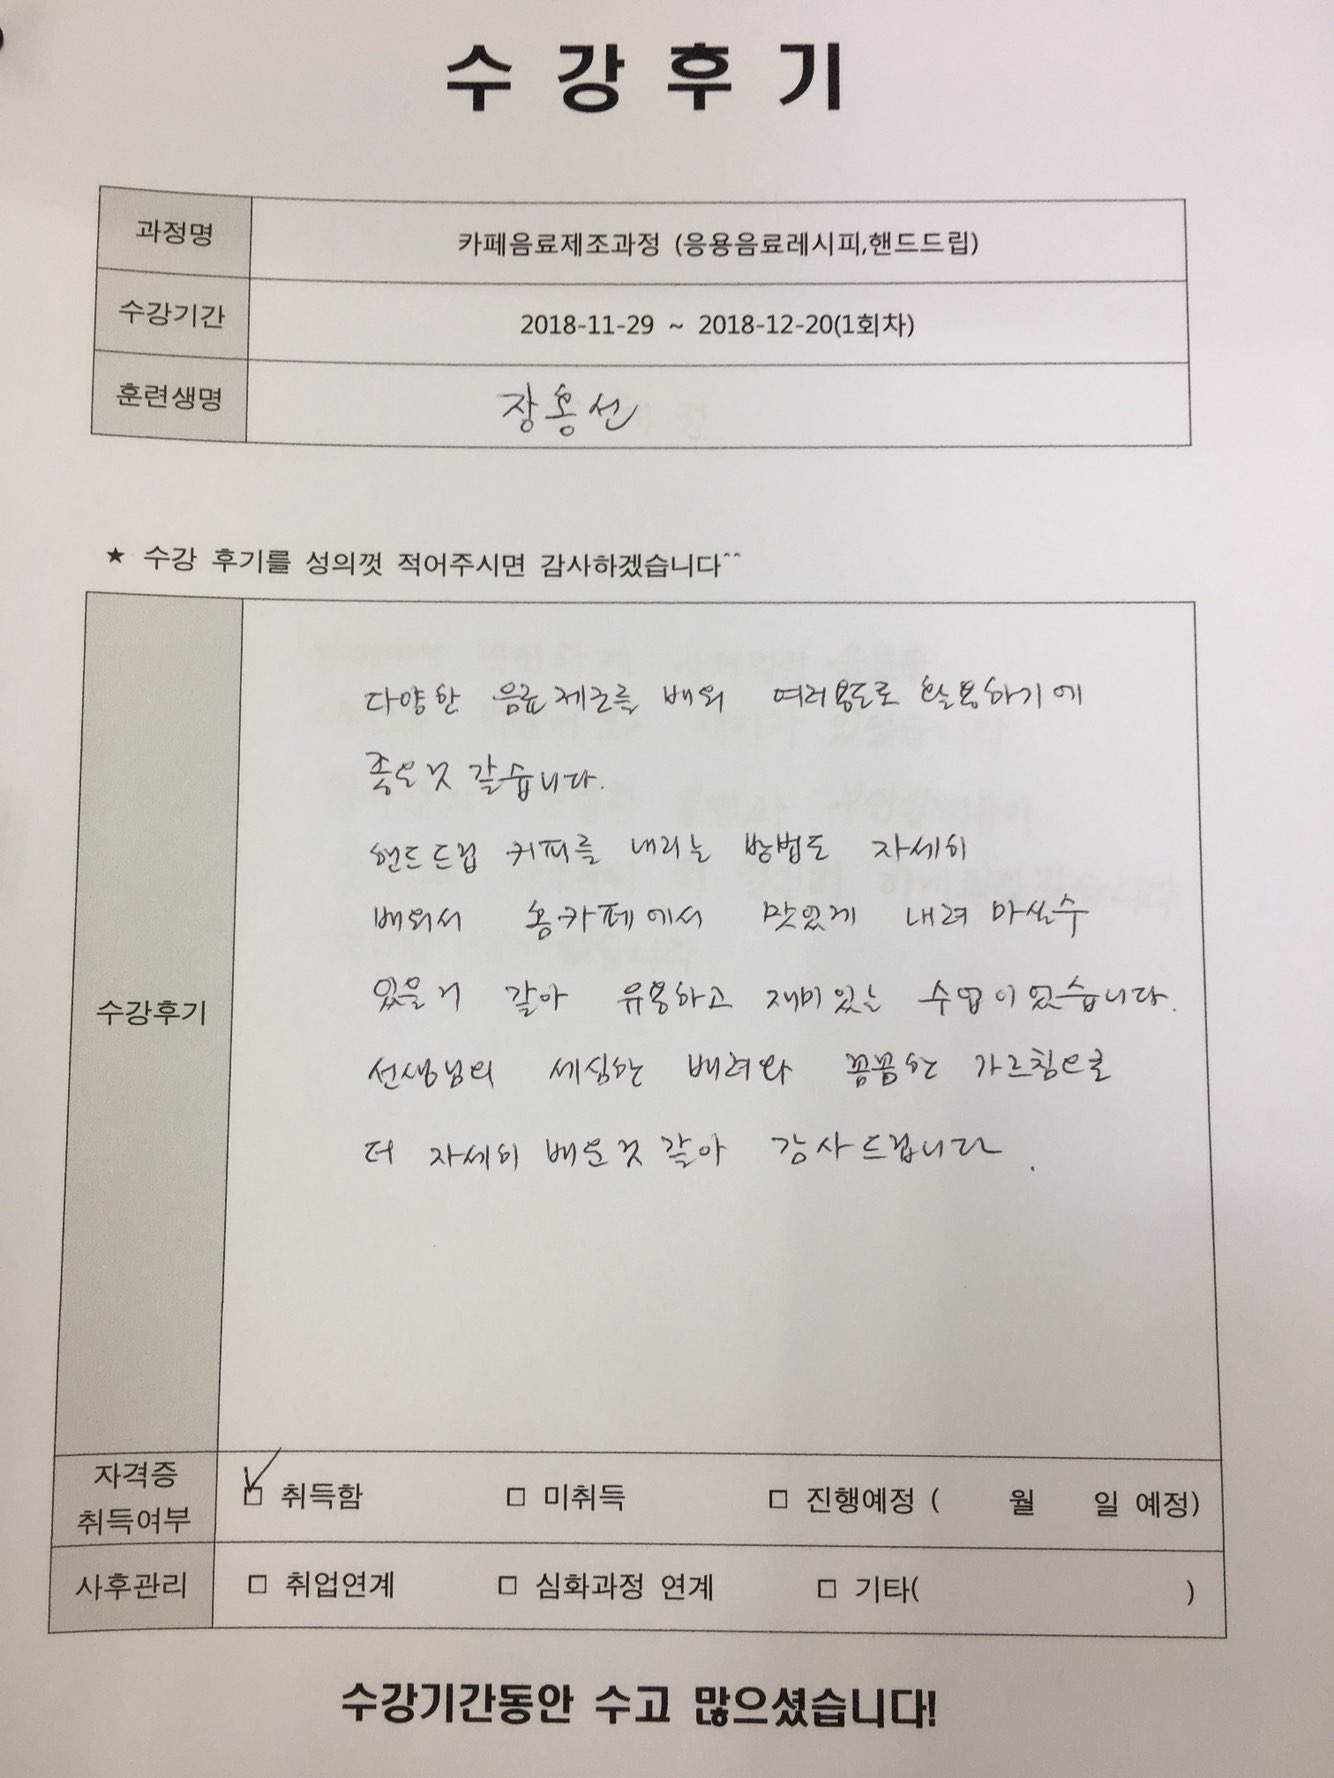 수강후기
과정명 카페음료제조과정 (응용음료레시피,핸드드립)
수강기간 2018-11-29 ~ 2018-12-20(1회차)
훈련생명 장홍선
★ 수강 후기를 성의껏 적어주시면 감사하겠습니다^^
다양한 음료제조를 배워 여러용도로 활용하기에
좋은것 같습니다.
핸드드립 커피를 내리는 방법도 자세히
배워서 홈카페에서 맛있게 내려 마실수
있을거 같아 유용하고 재미있는 수업이었습니다.
수강후기
선생님의 세심한 배려와 꼼꼼한 가르침으로
더 자세히 배운것 같아 감사드립니다.
자격증
취득여부
☑ 취득함 □ 미취득 □ 진행예정 ( 월 일 예정)
사후관리 □ 취업연계 □ 심화과정 연계 □ 기타( )
수강기간동안 수고 많으셨습니다!